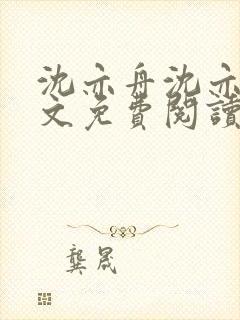 沈亦舟沈亦
文免費閱讀
龔晟